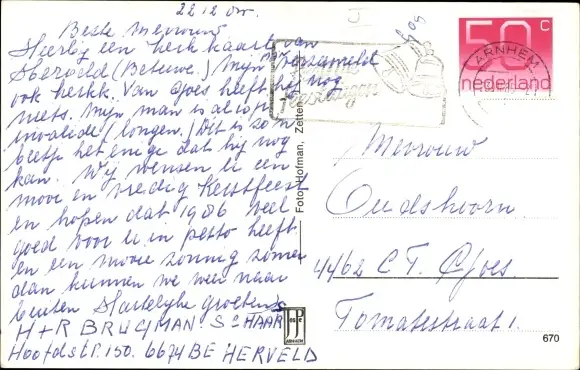 22.12 ow.
Beste Mevrouw
Hierbij een kerkkaart van
Herveld (Betuwe.) Mijn man verzameld
ook kerkk. Van Goes heeft hij nog
niets. Mijn man is al jong
invalide (longen.) Dit is zo'n
beetje het enige dat hij nog
kan. Wij wensen u een
mooi en vredig Kerstfeest
en hopen dat 1986 veel
goed voor u in petto heeft
en een mooie zonnig zomer
dan kunnen we weer naar
buiten Hartelijke groeten
H + R BRUGMAN Sr HAAR
Hoofdstr. 150. 6674 BE HERVELD
Foto Hofman, Zetten
JosPé
ARNHEM
goes
Feestdagen
ARNHEM
50 c
nederland
Mevrouw
Oudshoorn
4462 CT. Goes
Tomatestraat 1.
670